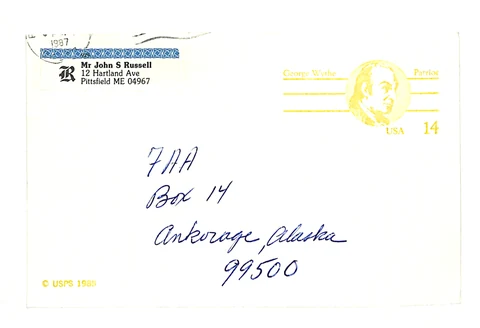 1987
R
Mr John S Russell
12 Hartland Ave
Pittsfield ME 04967
George Wythe Patriot
USA 14
FAA
Box 14
Ankorage, Alaska
99500
© USPS 1985